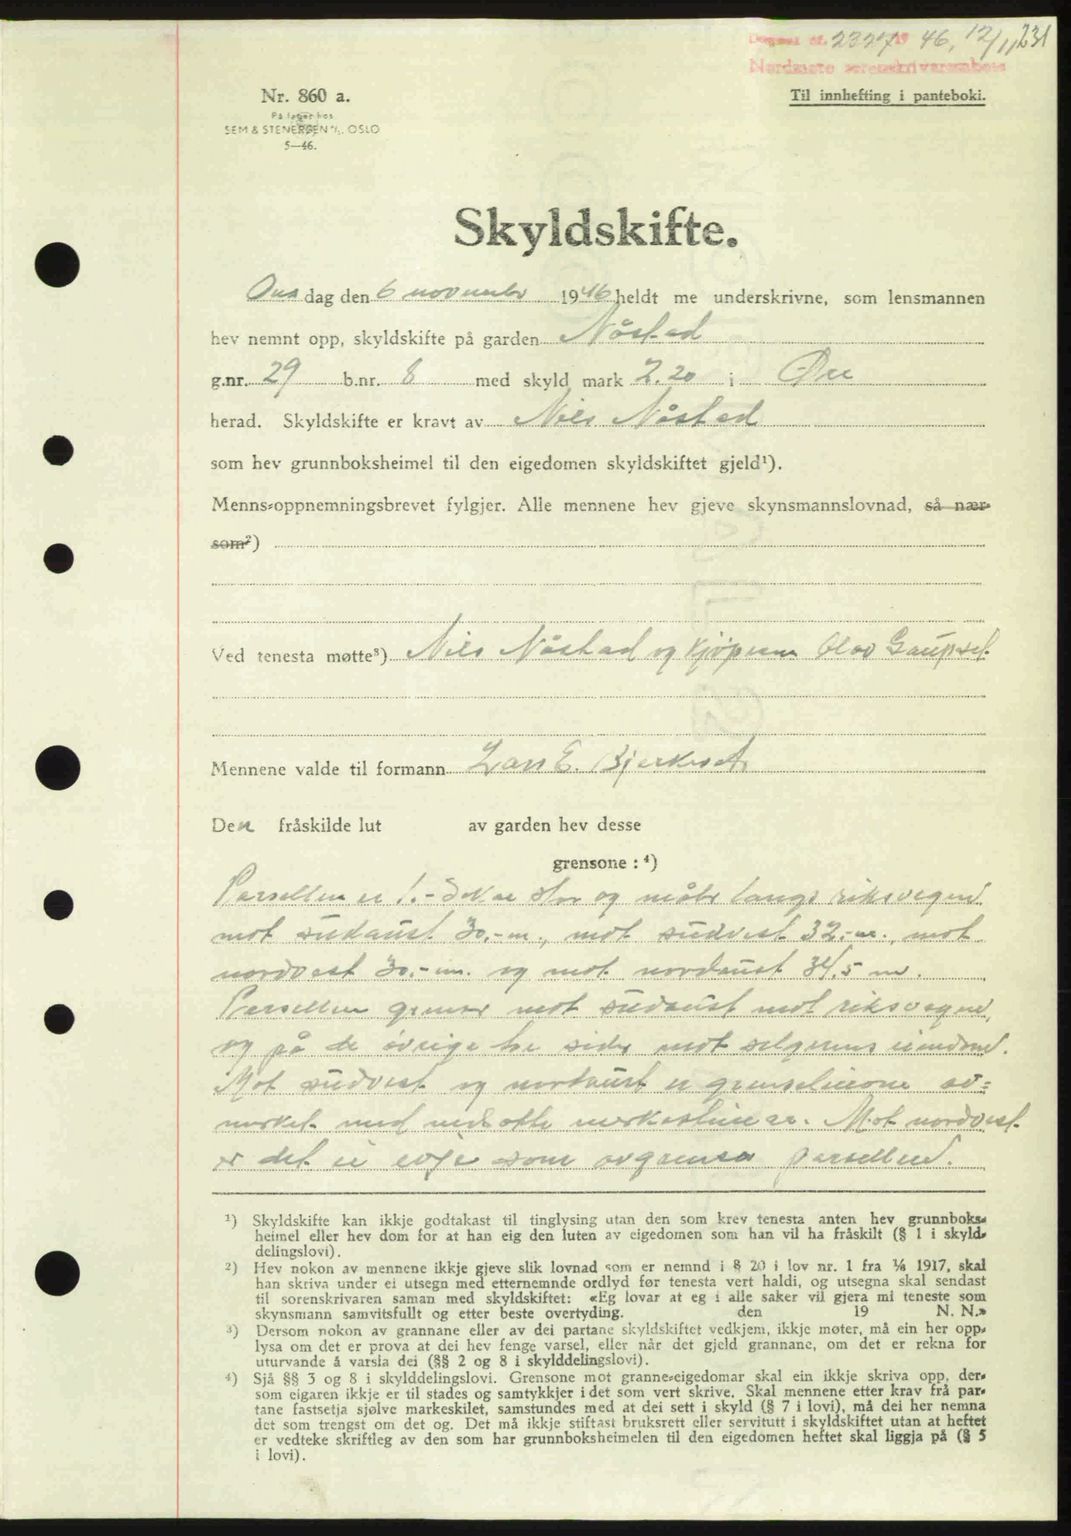 Dagbok nr. 2327 1946, 12/11 231
Nordmøre sorenskrivarembete
Nr. 860 a.
Til innhefting i panteboki.
På lager hos
SEM & STENERSEN A/S, OSLO
5—46.
Skyldskifte.
Onsdag den 6 november 1946 heldt me underskrivne, som lensmannen
hev nemnt opp, skyldskifte på garden Nåstad
g.nr. 29 b.nr. 8 med skyld mark 2.20 i Øre
herad. Skyldskifte er kravt av Nils Nåstad
som hev grunnboksheimel til den eigedomen skyldskiftet gjeld¹).
Menns-oppnemningsbrevet fylgjer. Alle mennene hev gjeve skynsmannslovnad, så nær-
som²)
Ved tenesta møtte³) Nils Nåstad og kjøperen Olav Gaupset.
Mennene valde til formann Lars E. Bjerkeset
Den fråskilde lut av garden hev desse
grensone : ⁴)
Parsellen er 1.- dekar stor og måler langs riksvegen
mot sudaust 30.- m., mot sudvest 32.- m., mot
nordvest 30.- m. og mot nordaust 34,5 m.
Parsellen grenser mot sudaust mot riksvegen,
og på de øvrige tre sider mot selgerens eiendom.
Mot sudvest og nordaust er grenselinone av=
merket med nedsatte merkesteiner. Mot nordvest
er det ei evje som avgrensa parsellen.
¹) Skyldskifte kan ikkje godtakast til tinglysing utan den som krev tenesta anten hev grunnboks-
heimel eller hev dom for at han eig den luten av eigedomen som han vil ha fråskilt (§ 1 i skyld-
delingslovi).
²) Hev nokon av mennene ikkje gjeve slik lovnad som er nemnd i § 20 i lov nr. 1 fra ¼ 1917, skal
han skriva under ei utsegn med etternemnde ordlyd før tenesta vert haldi, og utsegna skal sendast
til sorenskrivaren saman med skyldskiftet: «Eg lovar at eg i alle saker vil gjera mi teneste som
skynsmann samvitsfullt og etter beste overtyding. den 19 N. N.»
³) Dersom nokon av grannane eller av dei partane skyldskiftet vedkjem, ikkje møter, må ein her opp-
lysa om det er prova at dei hev fenge varsel, eller når det gjeld grannane, om det er rekna for
uturvande å varsla dei (§§ 2 og 8 i skylddelingslovi).
⁴) Sjå §§ 3 og 8 i skylddelingslovi. Grensone mot granne-eigedomar skal ein ikkje skriva opp, der-
som eigaren ikkje er til stades og samtykkjer i det som vert skrive. Skal mennene etter krav frå par-
tane fastsetja sjølve markeskilet, samstundes med at dei sett i skyld (§ 7 i lovi), må dei her nemna
det som trengst om det og. Det må ikkje stiftast bruksrett eller servitutt i skyldskiftet utan at heftet
er vedteke skriftleg av den som har grunnboksheimelen til den eigedomen heftet skal liggja på (§ 5
i lovi).